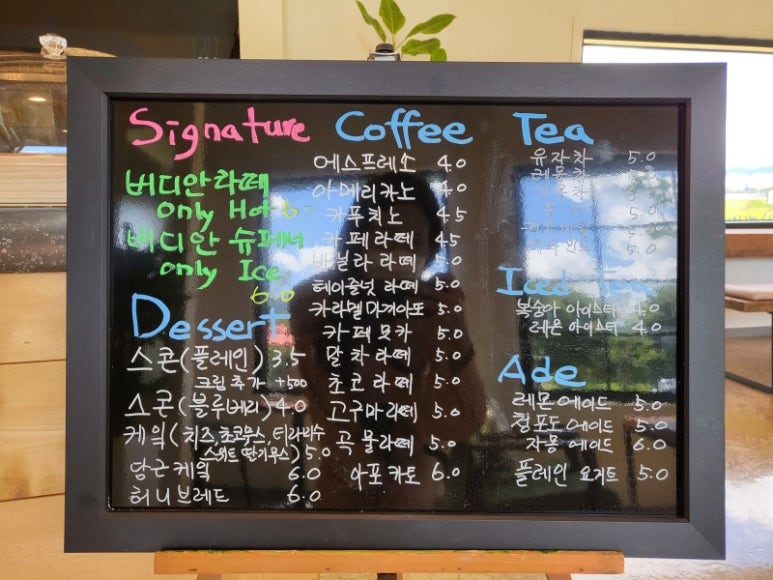 Signature
버디안라떼
only Hot 6.
버디안 슈페너
only Ice
6.0
Dessert
스콘(플레인) 3.5
크림추가 +500
스콘(블루베리) 4.0
케익(치즈,초코무스,티라미수
스위트 딸기무스) 5.0
당근케익 6.0
허니브레드 6.0
Coffee
에스프레소 4.0
아메리카노 4.0
카푸치노 4.5
카페라떼 4.5
바닐라 라떼 5.0
헤이즐넛 라떼 5.0
카라멜 마끼아또 5.0
카페모카 5.0
말차라떼 5.0
초코라떼 5.0
고구마라떼 5.0
곡물라떼 5.0
아포카토 6.0
Tea
유자차 5.0
레몬차
5.0
5.0
Iced Tea
복숭아 아이스티 4.0
레몬 아이스티 4.0
Ade
레몬에이드 5.0
청포도에이드 5.0
자몽에이드 6.0
플레인 요거트 5.0